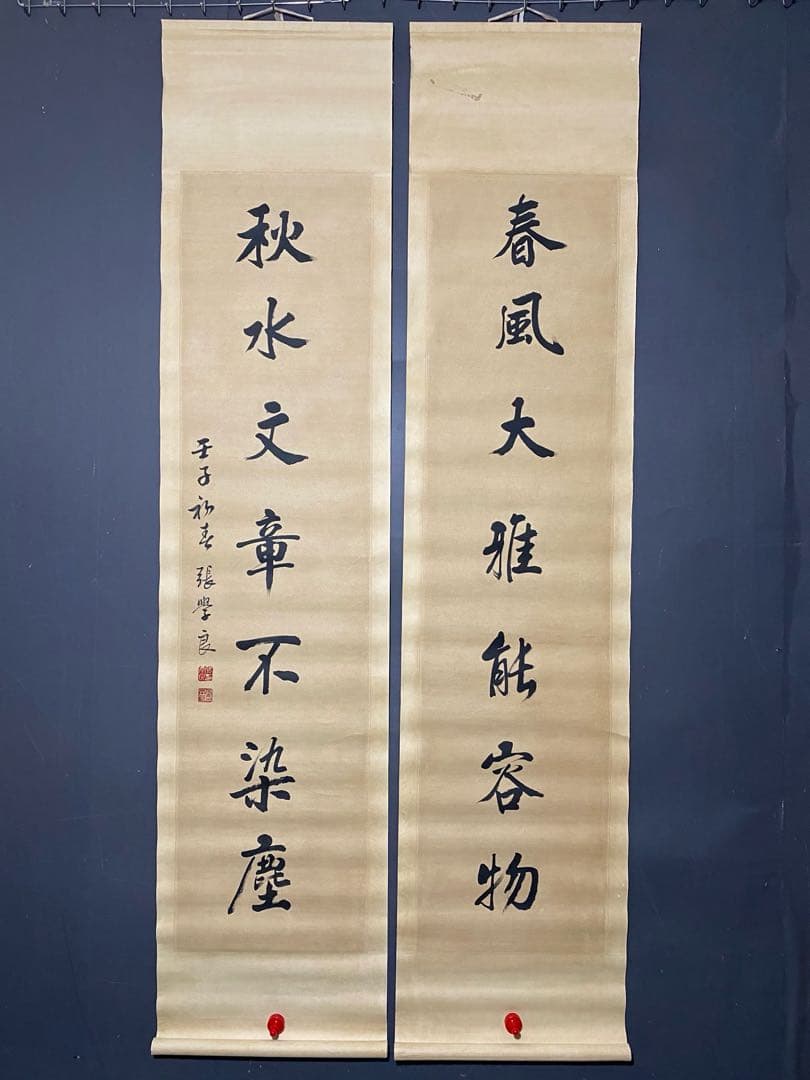 春風大雅能容物
秋水文章不染塵
壬子初春 張學良